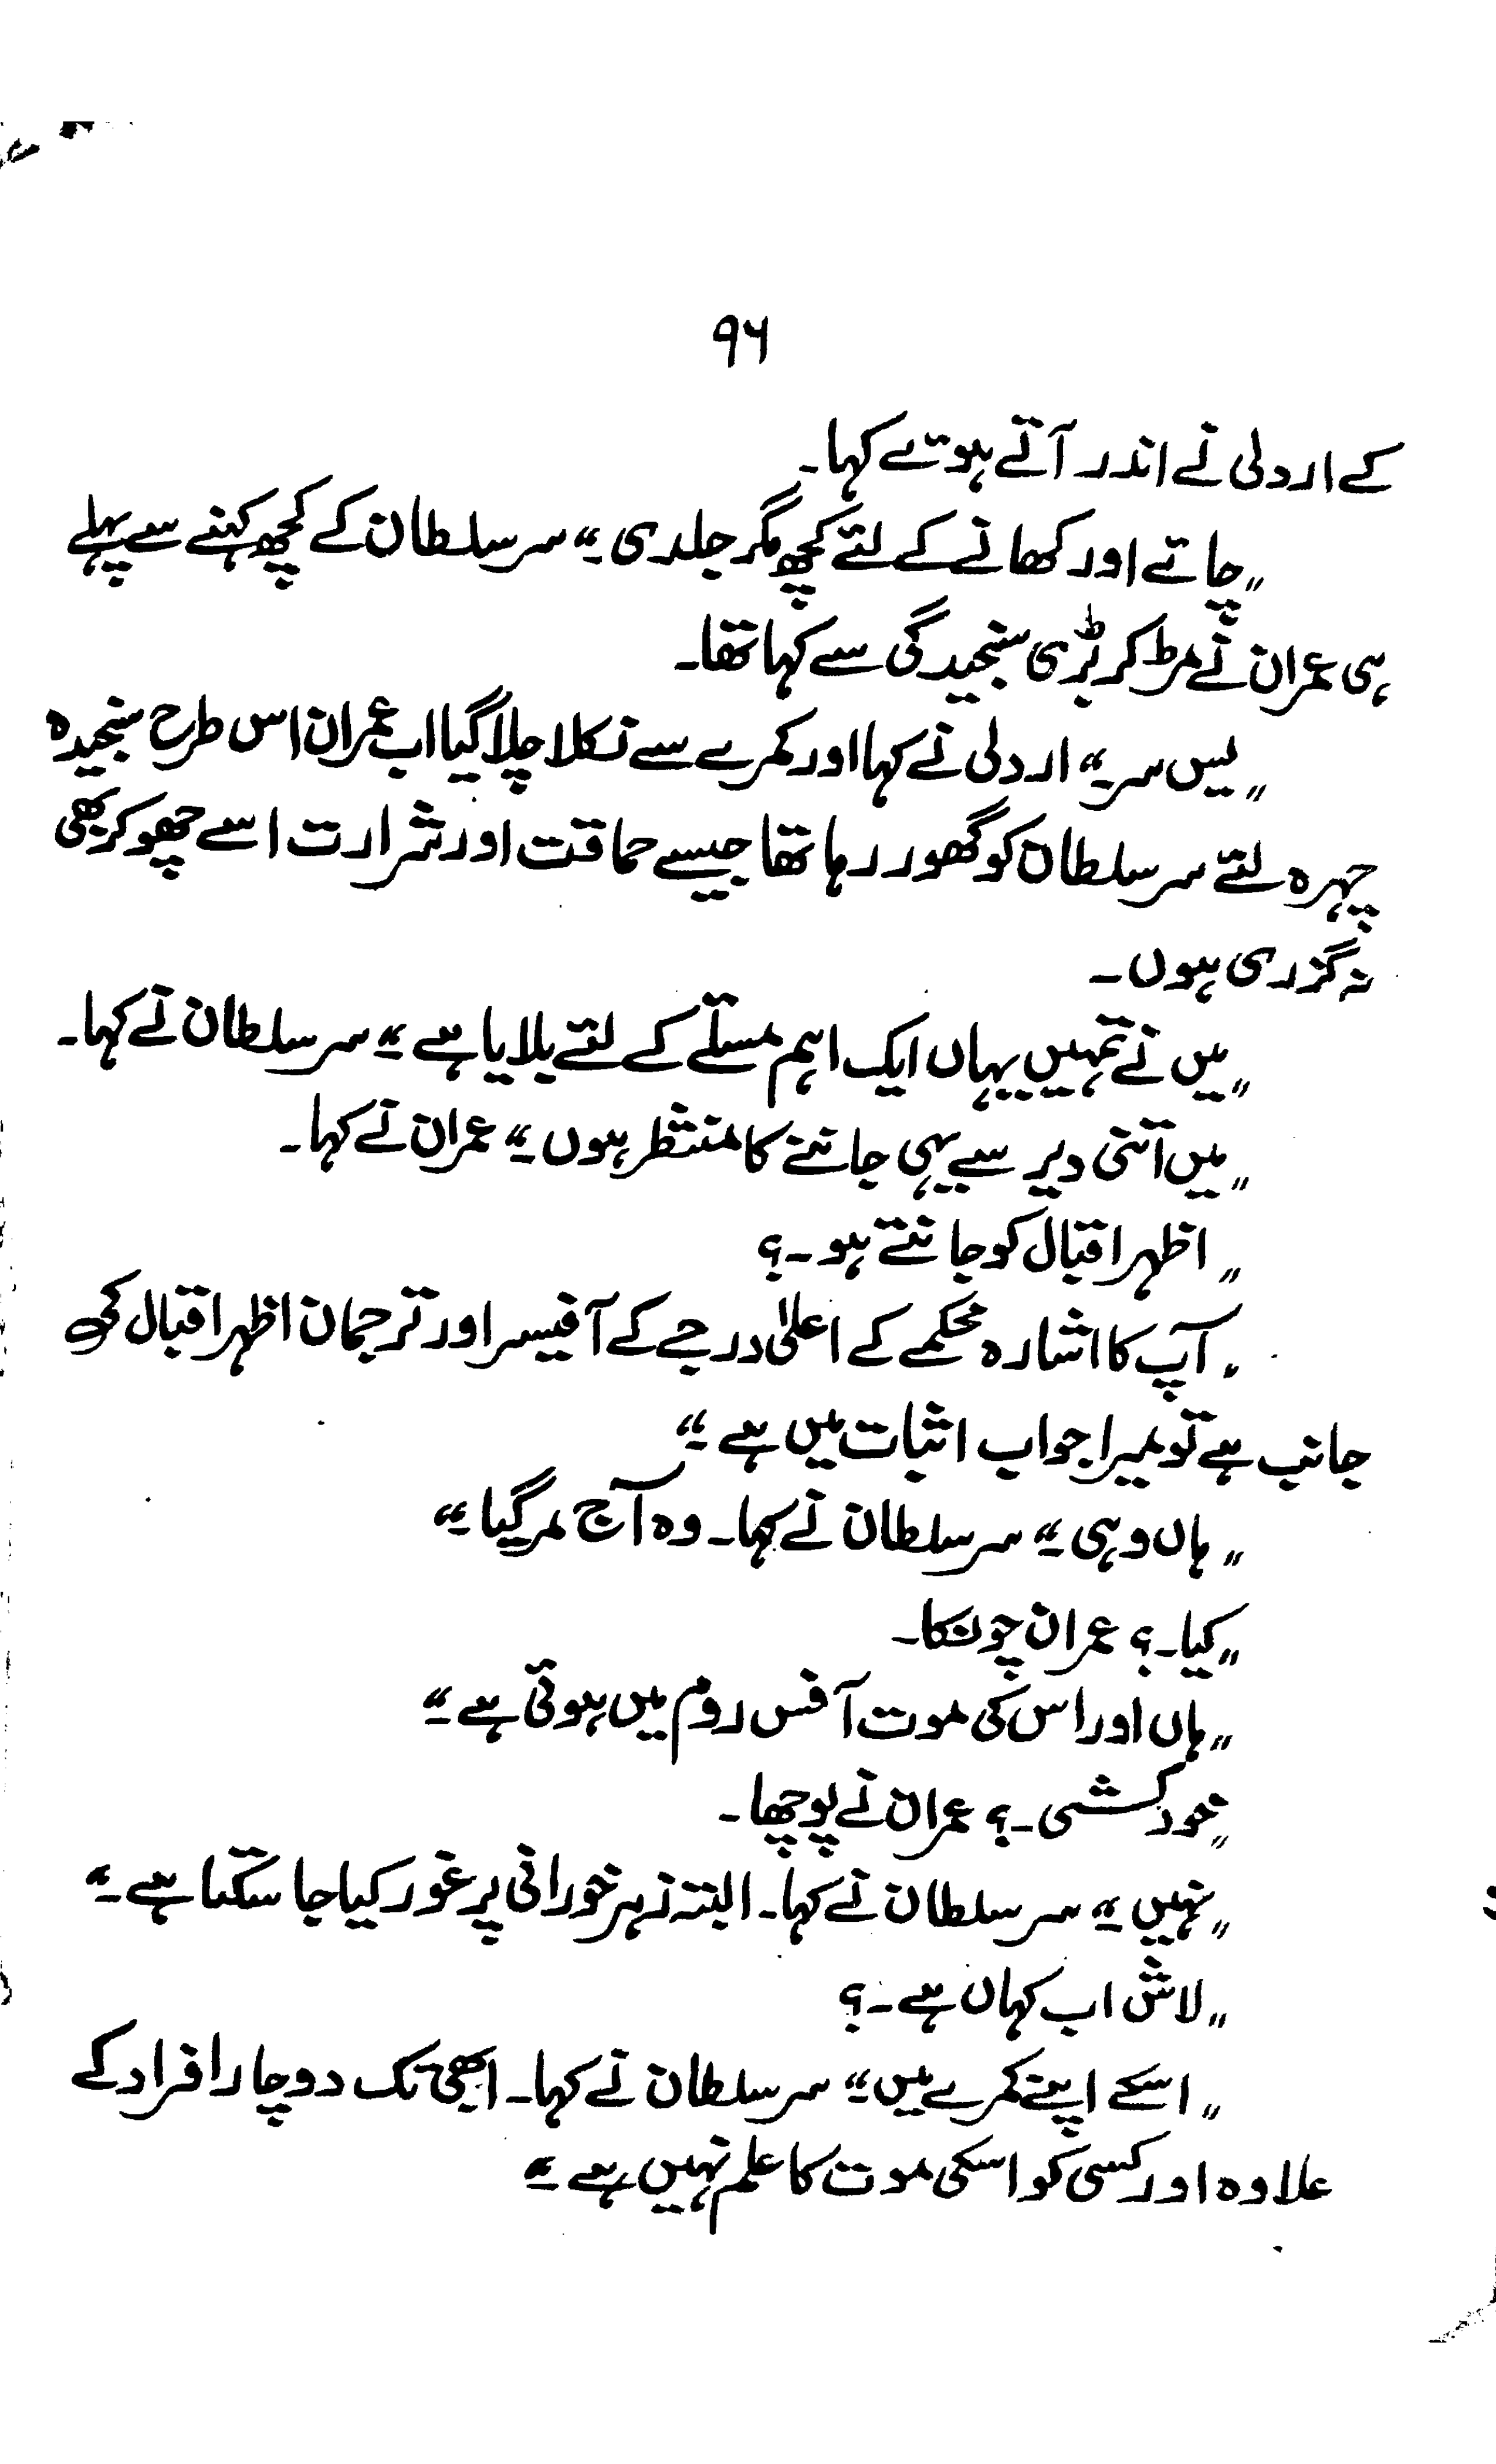 ۹۶
کے اردلی نے اندر آتے ہوئے کہا۔
"چائے اور کھانے کے لئے کچھ مگر جلدی۔" سر سلطان کے کچھ کہنے سے پہلے
ہی عمران نے مڑ کر بڑی سنجیدگی سے کہا تھا۔
"یس سر۔" اردلی نے کہا اور کمرے سے نکلا چلا گیا اب عمران اس طرح سنجیدہ
چہرہ لئے سر سلطان کو گھور رہا تھا جیسے حماقت اور شرارت اسے چھو کر بھی
نہ گزری ہوں۔
"میں نے تمہیں یہاں ایک اہم مسئلے کے لئے بلایا ہے۔" سر سلطان نے کہا۔
"میں اتنی دیر سے یہی جاننے کا منتظر ہوں۔" عمران نے کہا۔
"اظہر اقبال کو جانتے ہو۔؟
"آپ کا اشارہ محکمے کے اعلیٰ درجے کے آفیسر اور ترجمان اظہر اقبال کی
جانب ہے تو میرا جواب اثبات میں ہے۔"
"ہاں وہی۔" سر سلطان نے کہا۔ وہ آج مر گیا۔"
"کیا۔؟ عمران چونکا۔
"ہاں اور اس کی موت آفس روم میں ہوئی ہے۔"
"خودکشی۔؟ عمران نے پوچھا۔
"نہیں۔" سر سلطان نے کہا۔ البتہ زہر خورانی پر غور کیا جا سکتا ہے۔"
"لاش اب کہاں ہے۔؟
"اسکے اپنے کمرے میں۔" سر سلطان نے کہا۔ ابھی تک دو چار افراد کے
علاوہ اور کسی کو اسکی موت کا علم نہیں ہے۔"